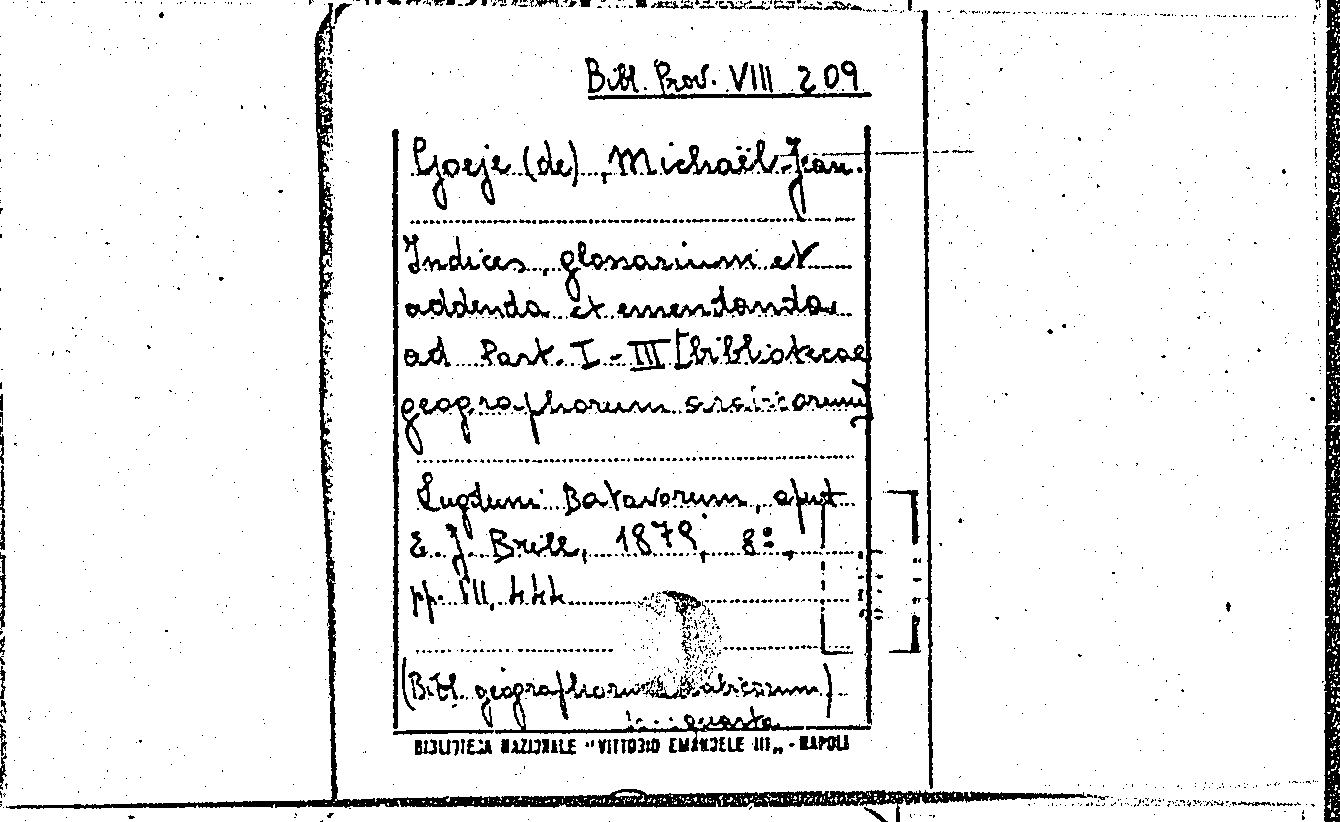 Bibl. Prov. VIII 209
Goeje (de), Michaël-Jean.
Indices, glossarium et
addenda et emendanda
ad Part. I-III [bibliotecae
geographorum arabicorum]
Lugduni Batavorum, aput
E. J. Brill, 1879, 8º,
pp. VII, 444
(Bibl. geographorum arabicorum)
quarta
BIBLIOTECA NAZIONALE "VITTORIO EMANUELE III" - NAPOLI